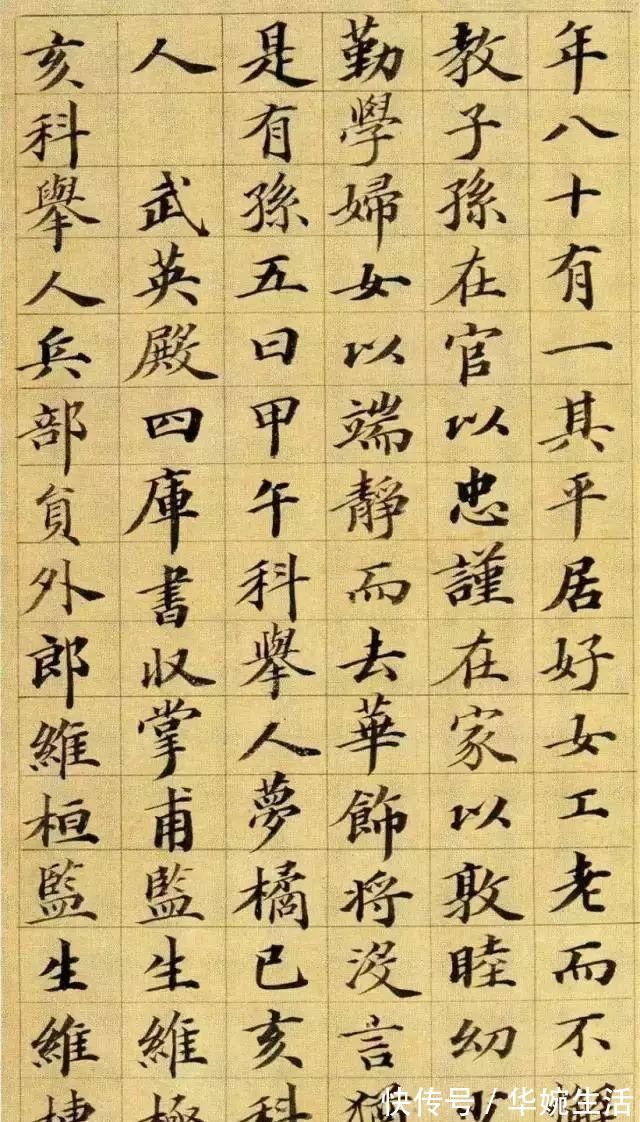 年八十有一其平居好女工老而不懈
教子孫在官以忠謹在家以敦睦幼少
勤學婦女以端靜而去華飾將沒言猶
是有孫五曰甲午科舉人夢橘已亥科
人武英殿四庫書收掌甫監生維極
亥科舉人兵部員外郎維桓監生維
快传号/华婉生活